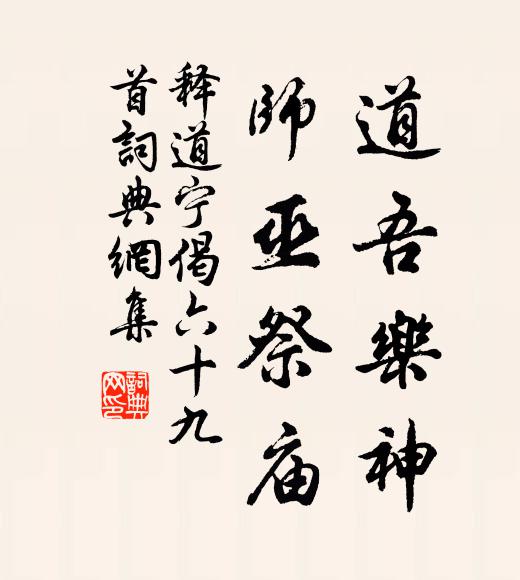 道吾樂神
師巫祭庙
释道宁偈六十九
首詞典網集
詞典
网印